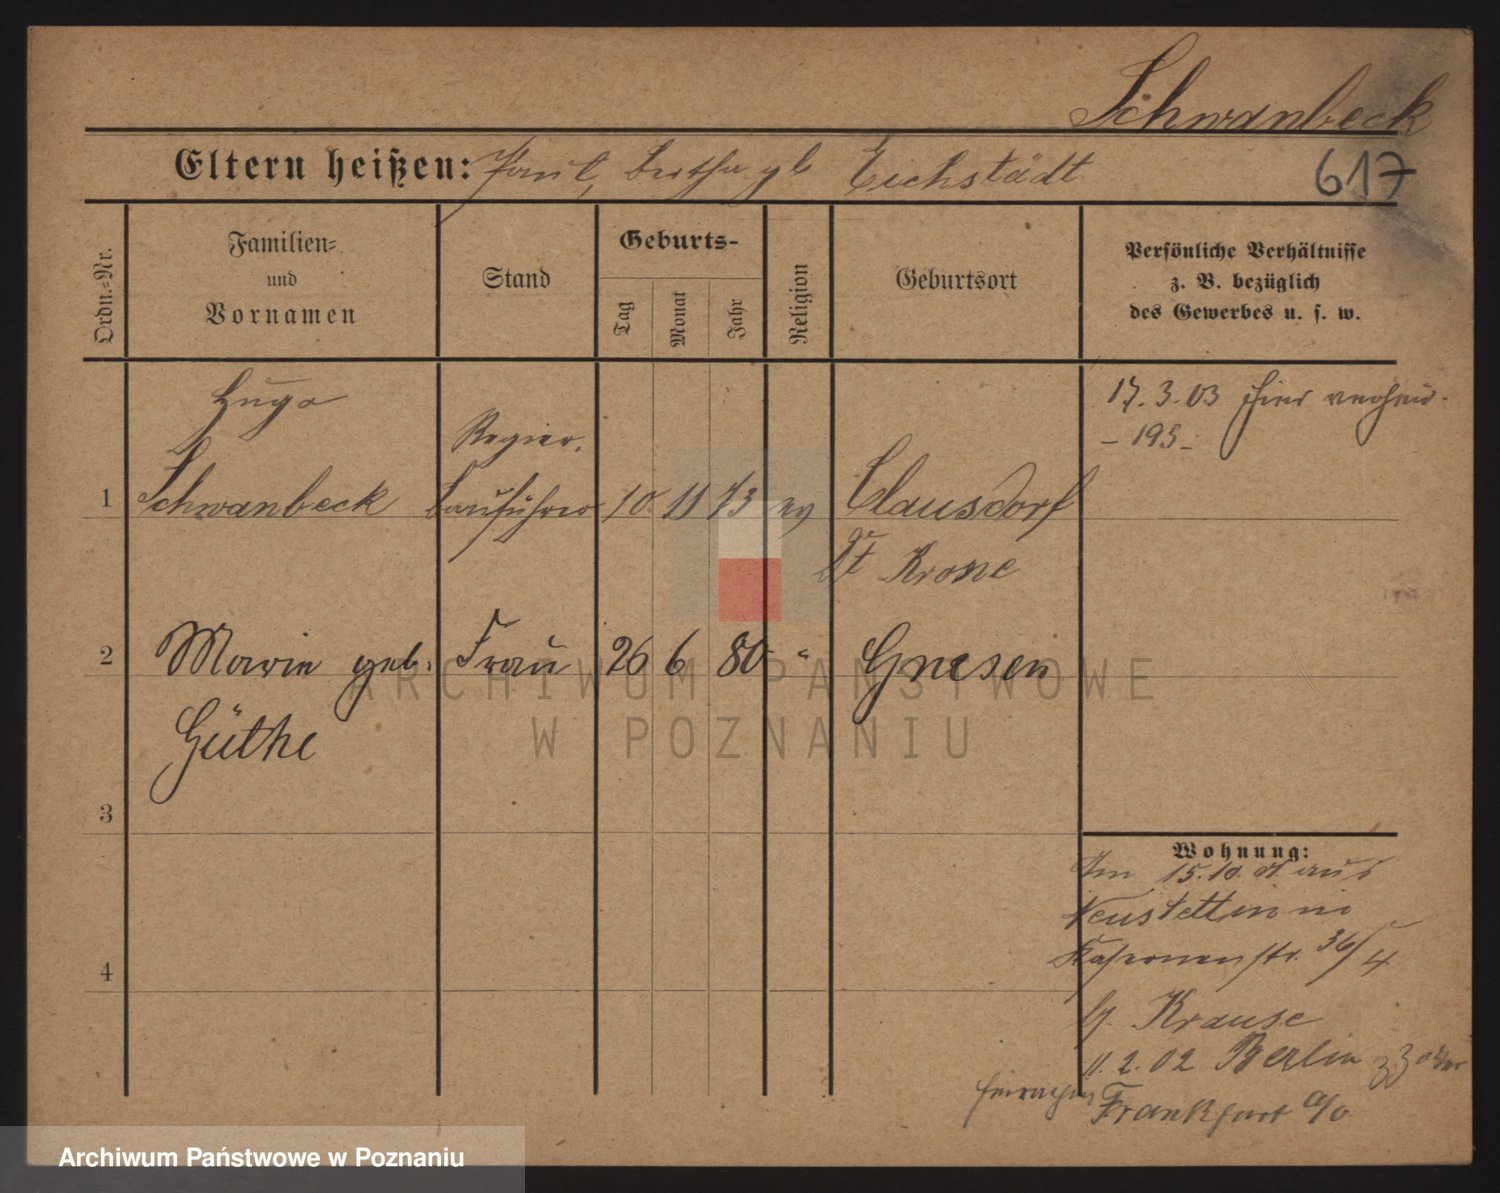 Schwanbeck
Eltern heißen: Paul, Bertha gb Eichstädt
617
Ordn.-Nr.
Familien-
und
Vornamen
Stand
Geburts-
Tag
Monat
Jahr
Religion
Geburtsort
Persönliche Verhältnisse
z. B. bezüglich
des Gewerbes u. s. w.
Hugo
Regier.
17. 3. 03 hier
- 195 -
1 Schwanbeck Bauführer 10 11 73 ev Clausdorf
Dt Krone
2 Marie geb. Frau 26 6 80 " Gnesen
Güthe
3
4
Wohnung:
Am 15.10.01 aus
Neustettin in
Kasernenstr. 36/4
b. Krause
11. 2. 02 Berlin
Frankfurt a/o
ARCHIWUM PAŃSTWOWE
W POZNANIU
Archiwum Państwowe w Poznaniu